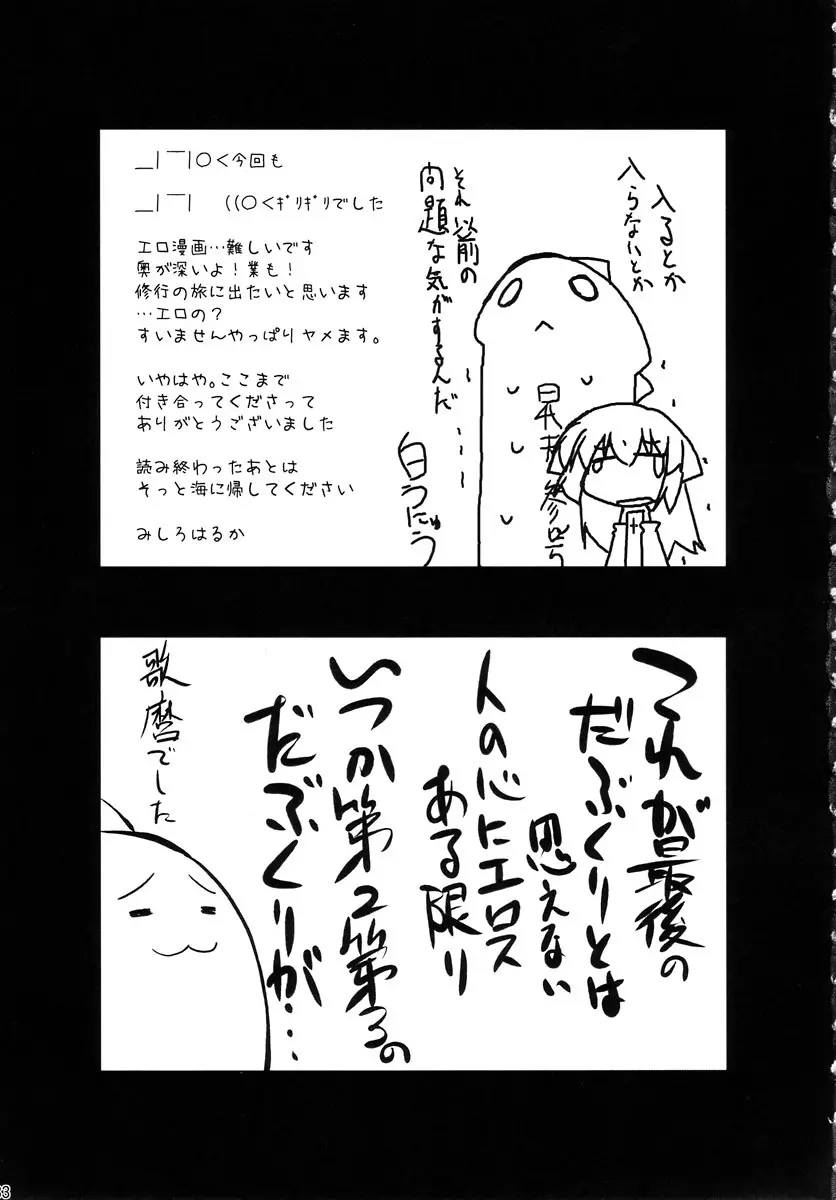 ＿|￣|○<今回も
＿|￣|　((○<ｷﾞﾘｷﾞﾘでした
エロ漫画…難しいです
奥が深いよ！業も！
修行の旅に出たいと思います
…エロの？
すいませんやっぱりヤメます。
いやはや。ここまで
付き合ってくださって
ありがとうございました
読み終わったあとは
そっと海に帰してください
みしろはるか
入るとか
入らないとか
それ以前の
問題な気がするんだ……
白うにゅう
これが最後の
だぶくりとは
思えない
人の心にエロス
ある限り
いつか第2第3の
だぶくりが…
歌麿でした